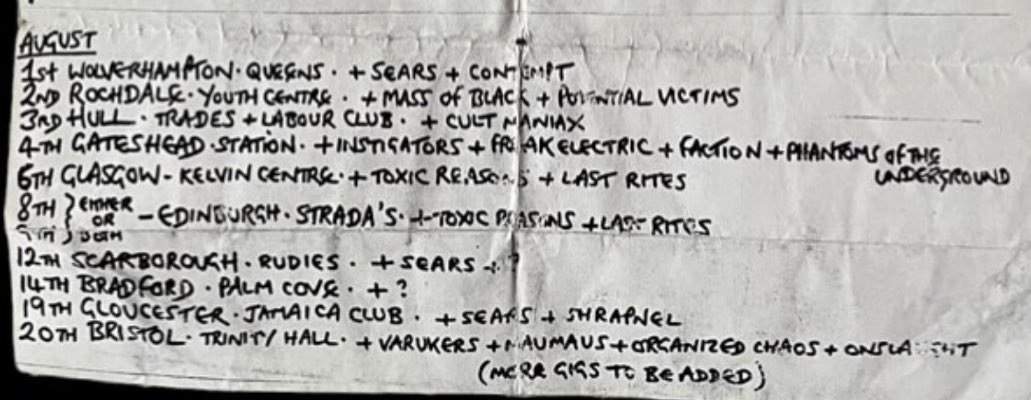 AUGUST
1st WOLVERHAMPTON · QUEENS · + SEARS + CONTEMPT
2ND ROCHDALE · YOUTH CENTRE · + MASS OF BLACK + POTENTIAL VICTIMS
3RD HULL · TRADES + LABOUR CLUB · + CULT MANIAX
4TH GATESHEAD · STATION · + INSTIGATORS + FREAK ELECTRIC + FACTION + PHANTOMS OF THE
UNDERGROUND
6TH GLASGOW - KELVIN CENTRE · + TOXIC REASONS + LAST RITES
8TH } EITHER
OR - EDINBURGH · STRADA'S · + TOXIC REASONS + LAST RITES
9TH } BOTH
12TH SCARBOROUGH · RUDIES · + SEARS + ?
14TH BRADFORD · PALM COVE · + ?
19TH GLOUCESTER · JAMAICA CLUB · + SEARS + SHRAPNEL
20TH BRISTOL · TRINITY HALL · + VARUKERS + MAUMAUS + ORGANIZED CHAOS + ONSLAUGHT
(MORE GIGS TO BE ADDED)